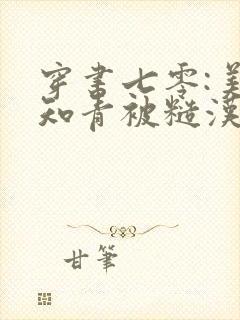 穿书七零:美
知青被糙汉
甘笔